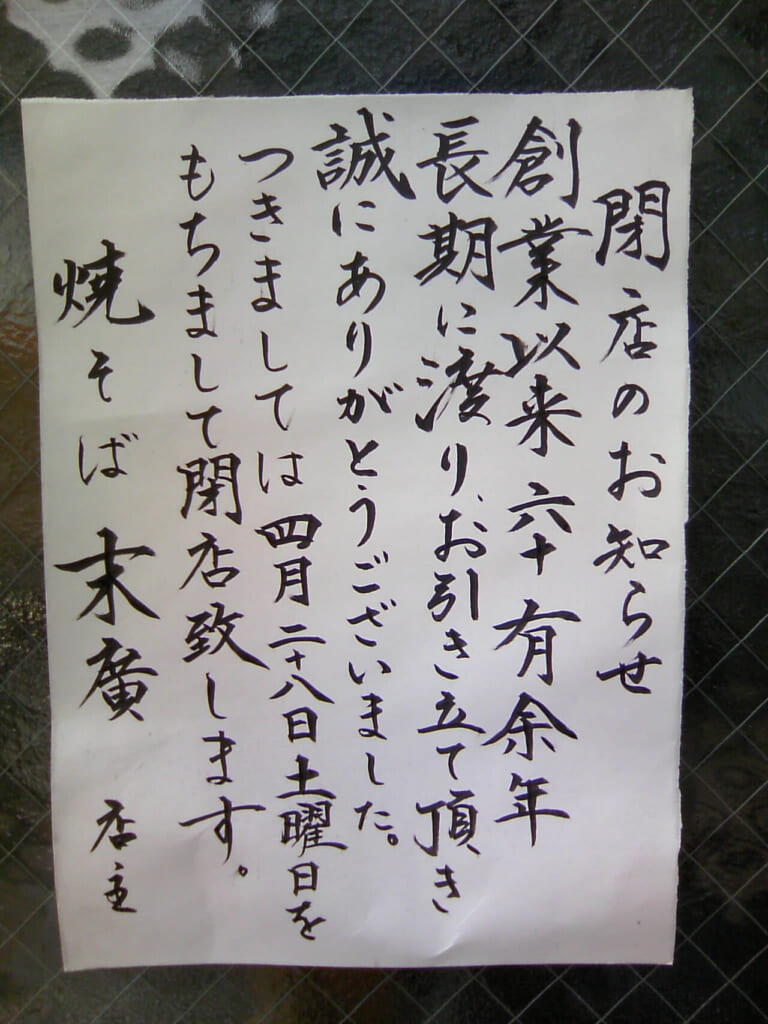 閉店のお知らせ
創業以来六十有余年
長期に渡り、お引き立て頂き
誠にありがとうございました。
つきましては四月二十八日土曜日を
もちまして閉店致します。
焼そば 末廣 店主